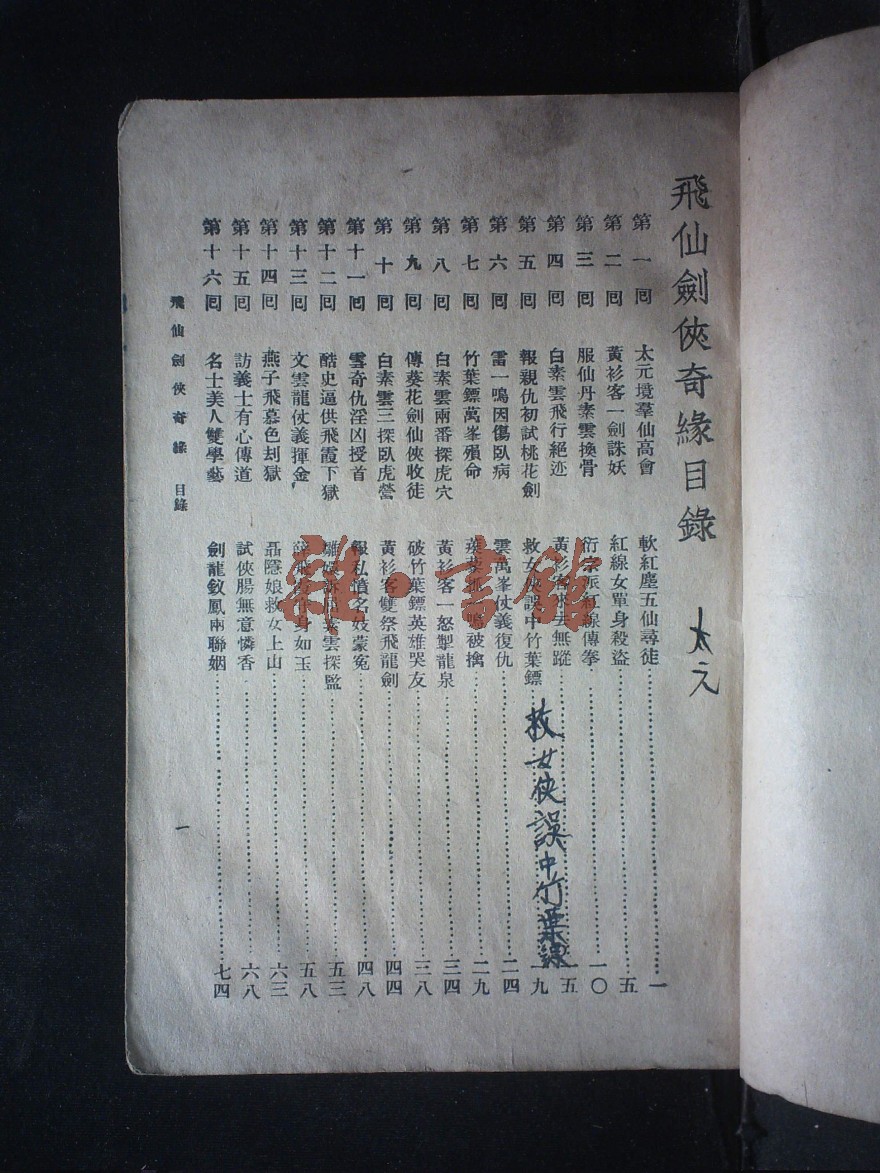 飛仙劍俠奇緣目錄
太元
第一囘 太元境羣仙高會 軟紅塵五仙尋徒 一
第二囘 黃衫客一劍誅妖 紅線女單身殺盜 五
第三囘 服仙丹素雲換骨 衍宗派紅線傳拳 一〇
第四囘 白素雲飛行絕迹 黃衫客來去無蹤 一五
第五囘 報親仇初試桃花劍 救女俠誤中竹葉鏢 一九
救女俠誤中竹葉鏢
第六囘 雷一鳴因傷臥病 雲萬峯仗義復仇 二四
第七囘 竹葉鏢萬峯殞命 一鳴被擒 二九
第八囘 白素雲兩番探虎穴 黃衫客一怒掣龍泉 三四
第九囘 傳葵花劍仙俠收徒 破竹葉鏢英雄哭友 三八
第十囘 白素雲三探臥虎營 黃衫客雙祭飛龍劍 四四
第十一囘 雪奇仇淫凶授首 報私憤名妓蒙寃 四八
第十二囘 酷吏逼供飛霞下獄 素雲探監 五三
第十三囘 文雲龍仗義揮金 薛飛霞守身如玉 五八
第十四囘 燕子飛慕色刦獄 聶隱娘救女上山 六三
第十五囘 訪義士有心傳道 試俠腸無意憐香 六八
第十六囘 名士美人雙學藝 劍龍釵鳳兩聯姻 七四
飛仙劍俠奇緣 目錄 一
雜·書館